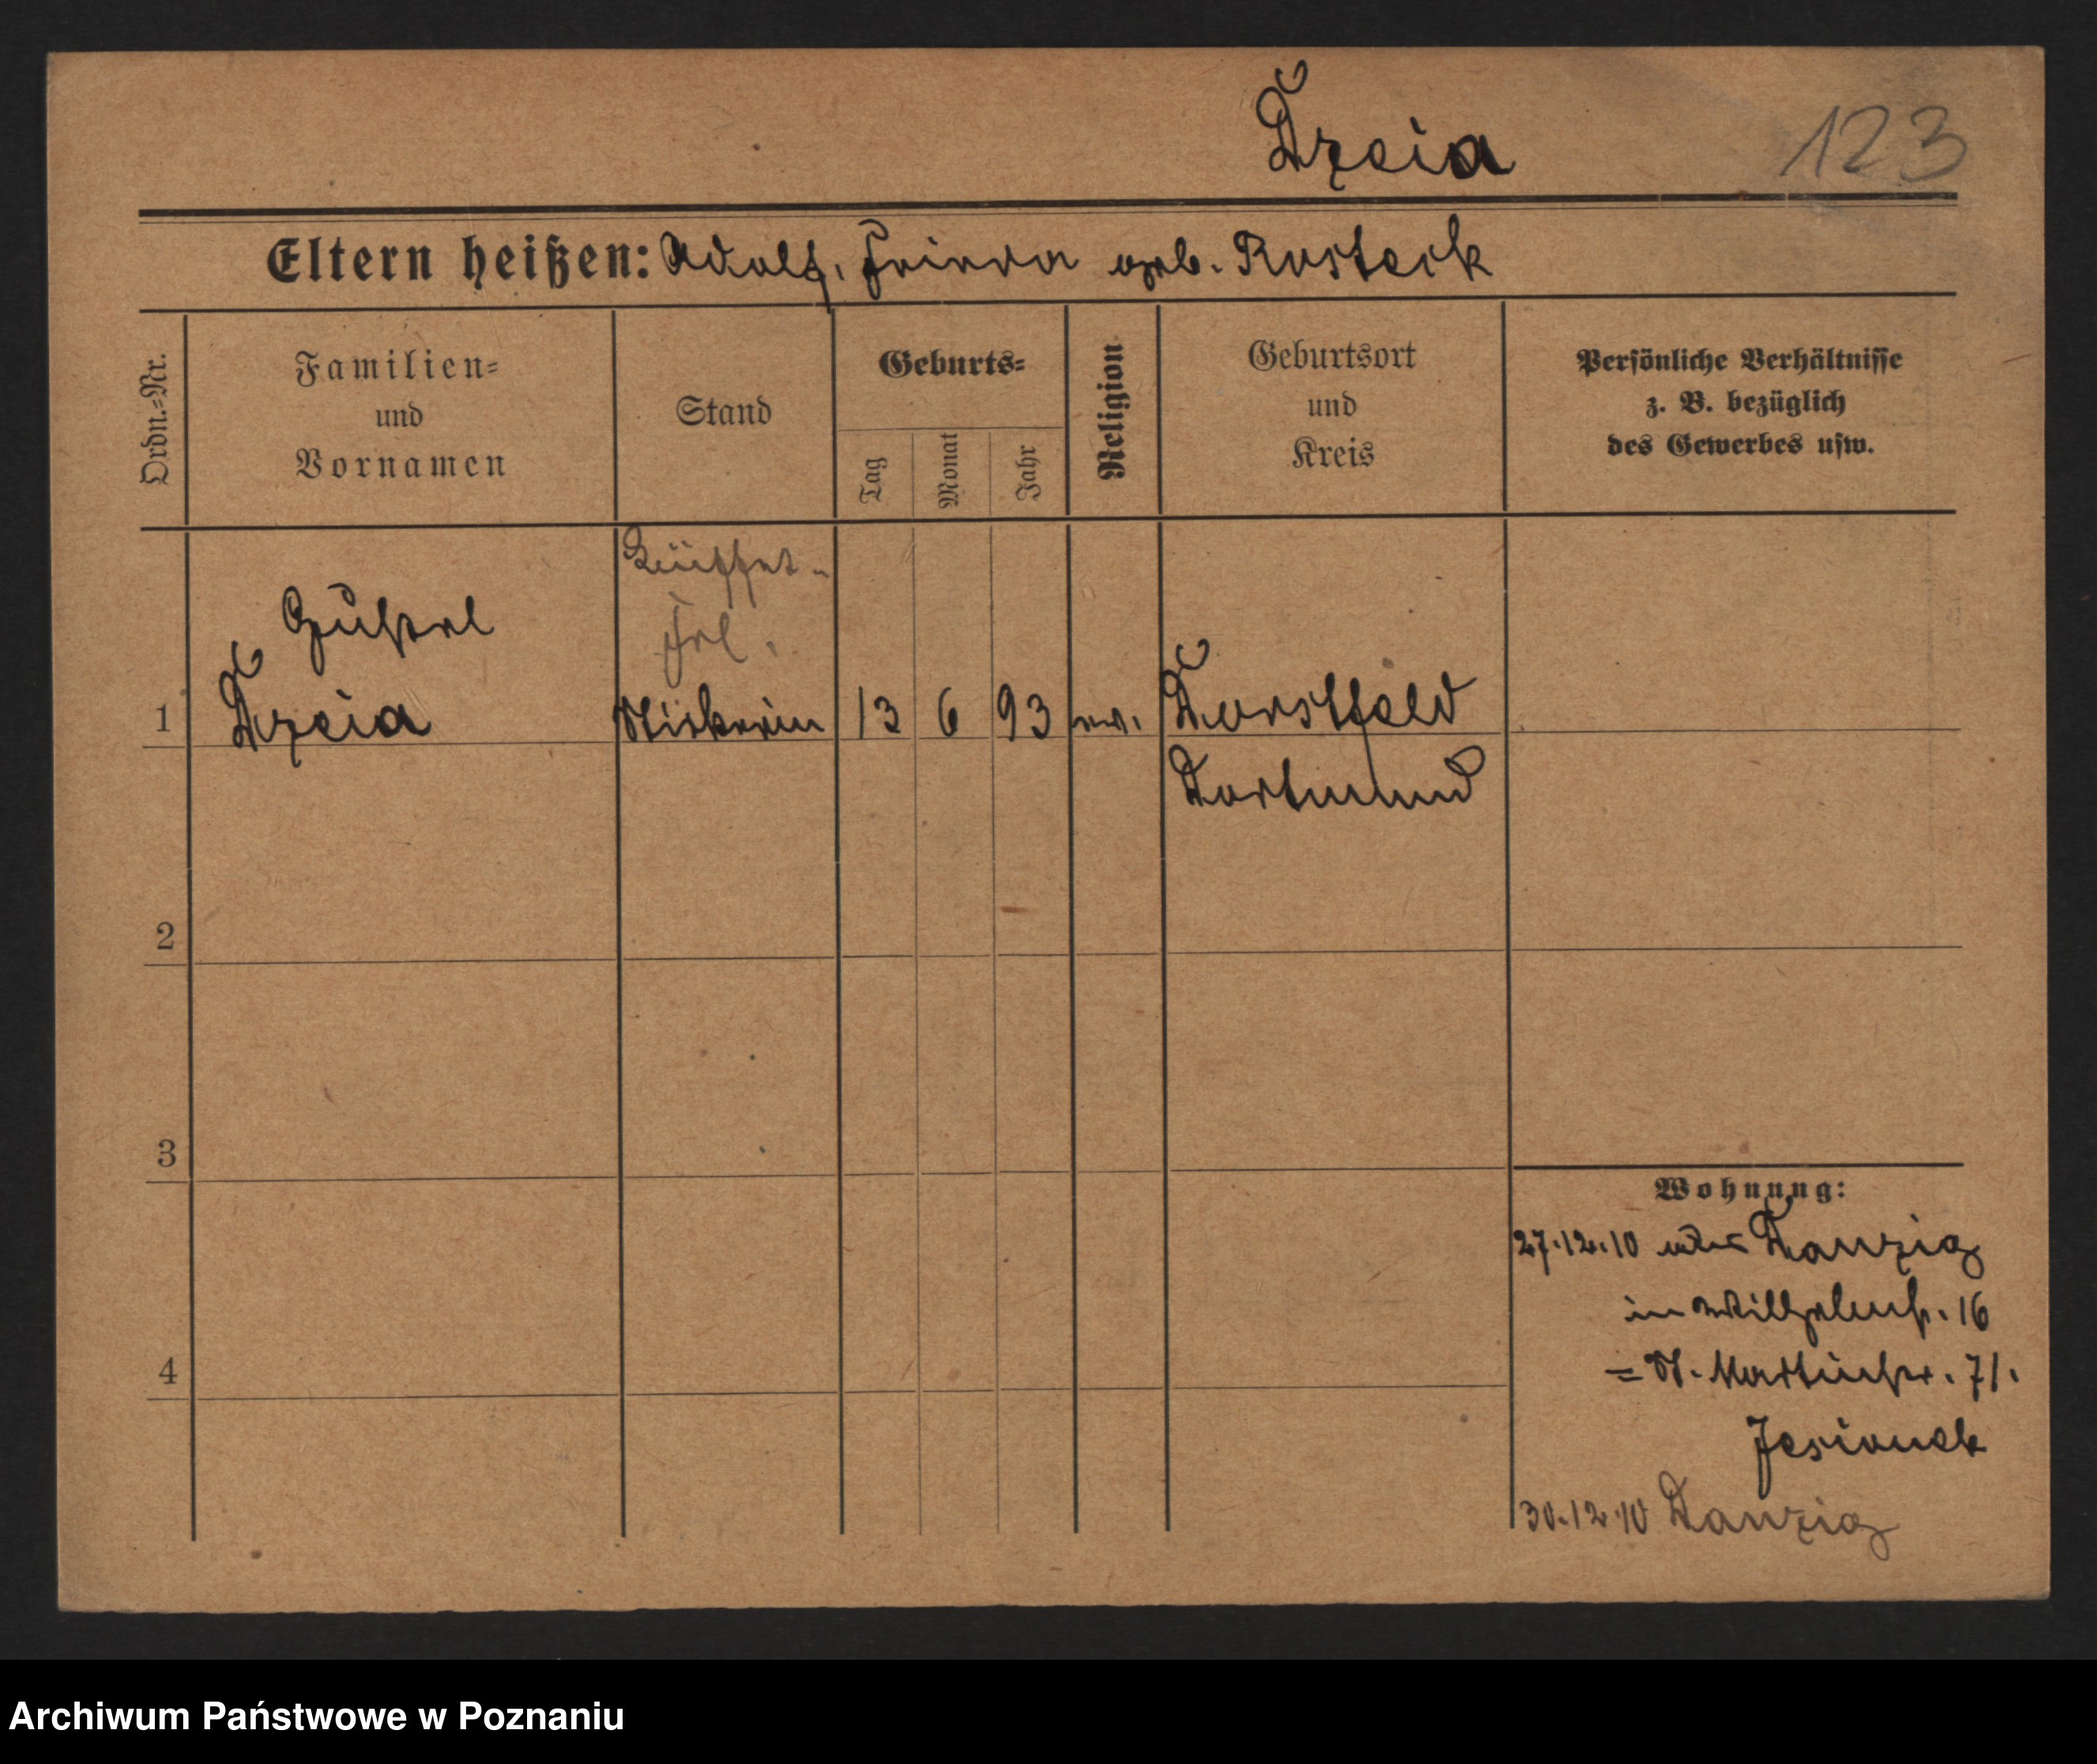 Dzeia
123
Eltern heißen: Adolf, geb. Rosteck
Ordn.-Nr.
Familien-
und
Vornamen
Stand
Geburts-
Tag
Monat
Jahr
Religion
Geburtsort
und
Kreis
Persönliche Verhältnisse
z. B. bezüglich
des Gewerbes usw.
Büffet-
Frl.
1 Dzeia 13 6 93 ev. Dorstfeld
Dortmund
2
3
4
Wohnung:
27.12.10 Danzig
in Wilhelmst. 16
= St. Martinstr. 71.
Jesionek
30.12.10 Danzig
Archiwum Państwowe w Poznaniu